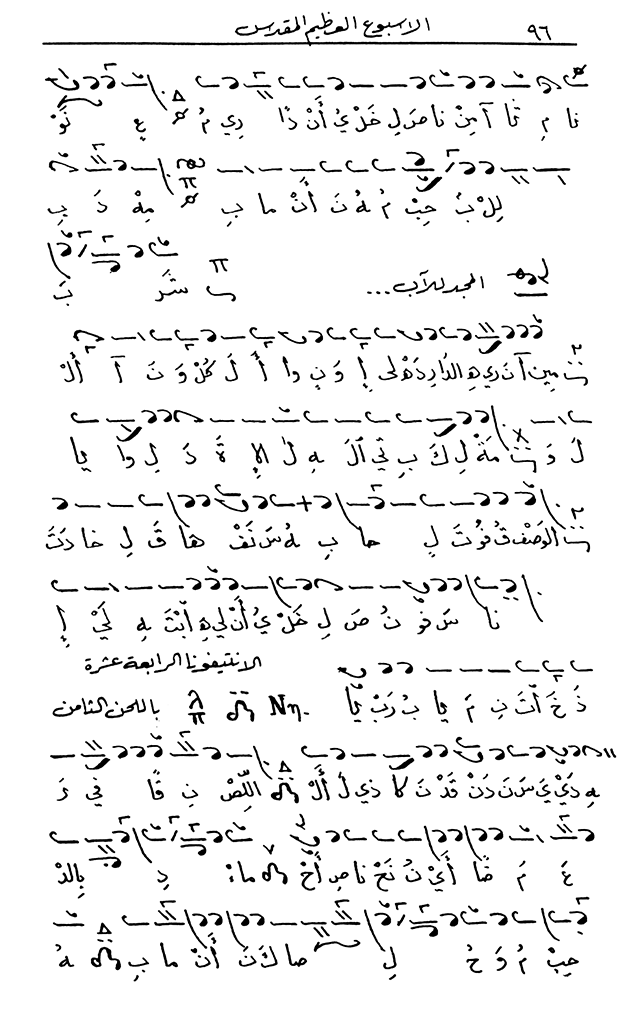 ٩٦ الاسبوع العظيم المقدس
نا مِ ثا آ مِنْ نا صَ لِ خَلْ يُ أَنْ ذا رِي مُ عِ نَوْ
لِلْ بُ حِبْ مُ هُ نَ أَنْ ما بِ مِهْ دَ بِ
المجد للآب... شَرْ بَ
مين آ نَ رِي هِ الدَّا رِ دَهْ لى إِ وَ نٍ وا أُ لَ كُلْ وَ نَ آ أَلْ
لَ وَ مَةْ لِ كَ بِ تي آلَ هِ لَ الإِ ةَ دَ لِ وا يا
الوَصْفِ قُ فُو تَ لِ حا بِ هُ سَ نَفْ ها قَ لِ خا دَتَ
نا سَ فُو نُ صَ لِ خَلْ يُ أَنْ لي هِ اِبْتَ هِ لَيْ إِ
الانتيفونا الرابعة عشرة
ذَ خَ أَتَ نِ مَ يا بُ رَبْ يا Νη. باللحن الثامن
هِ دَيْ يَ سَ نَ دَنْ قَدْ نَ كا ذي لَ أَلْ اللِّصْ نِ قا في رَ
عَ مَ ضا أَيْ نُ نَحْ نا صِ أَحْ ما: دِ بِالدْ
حِبْ مُ وَ حُ لِ صا كَ نَ أَنْ ما بِ هُ